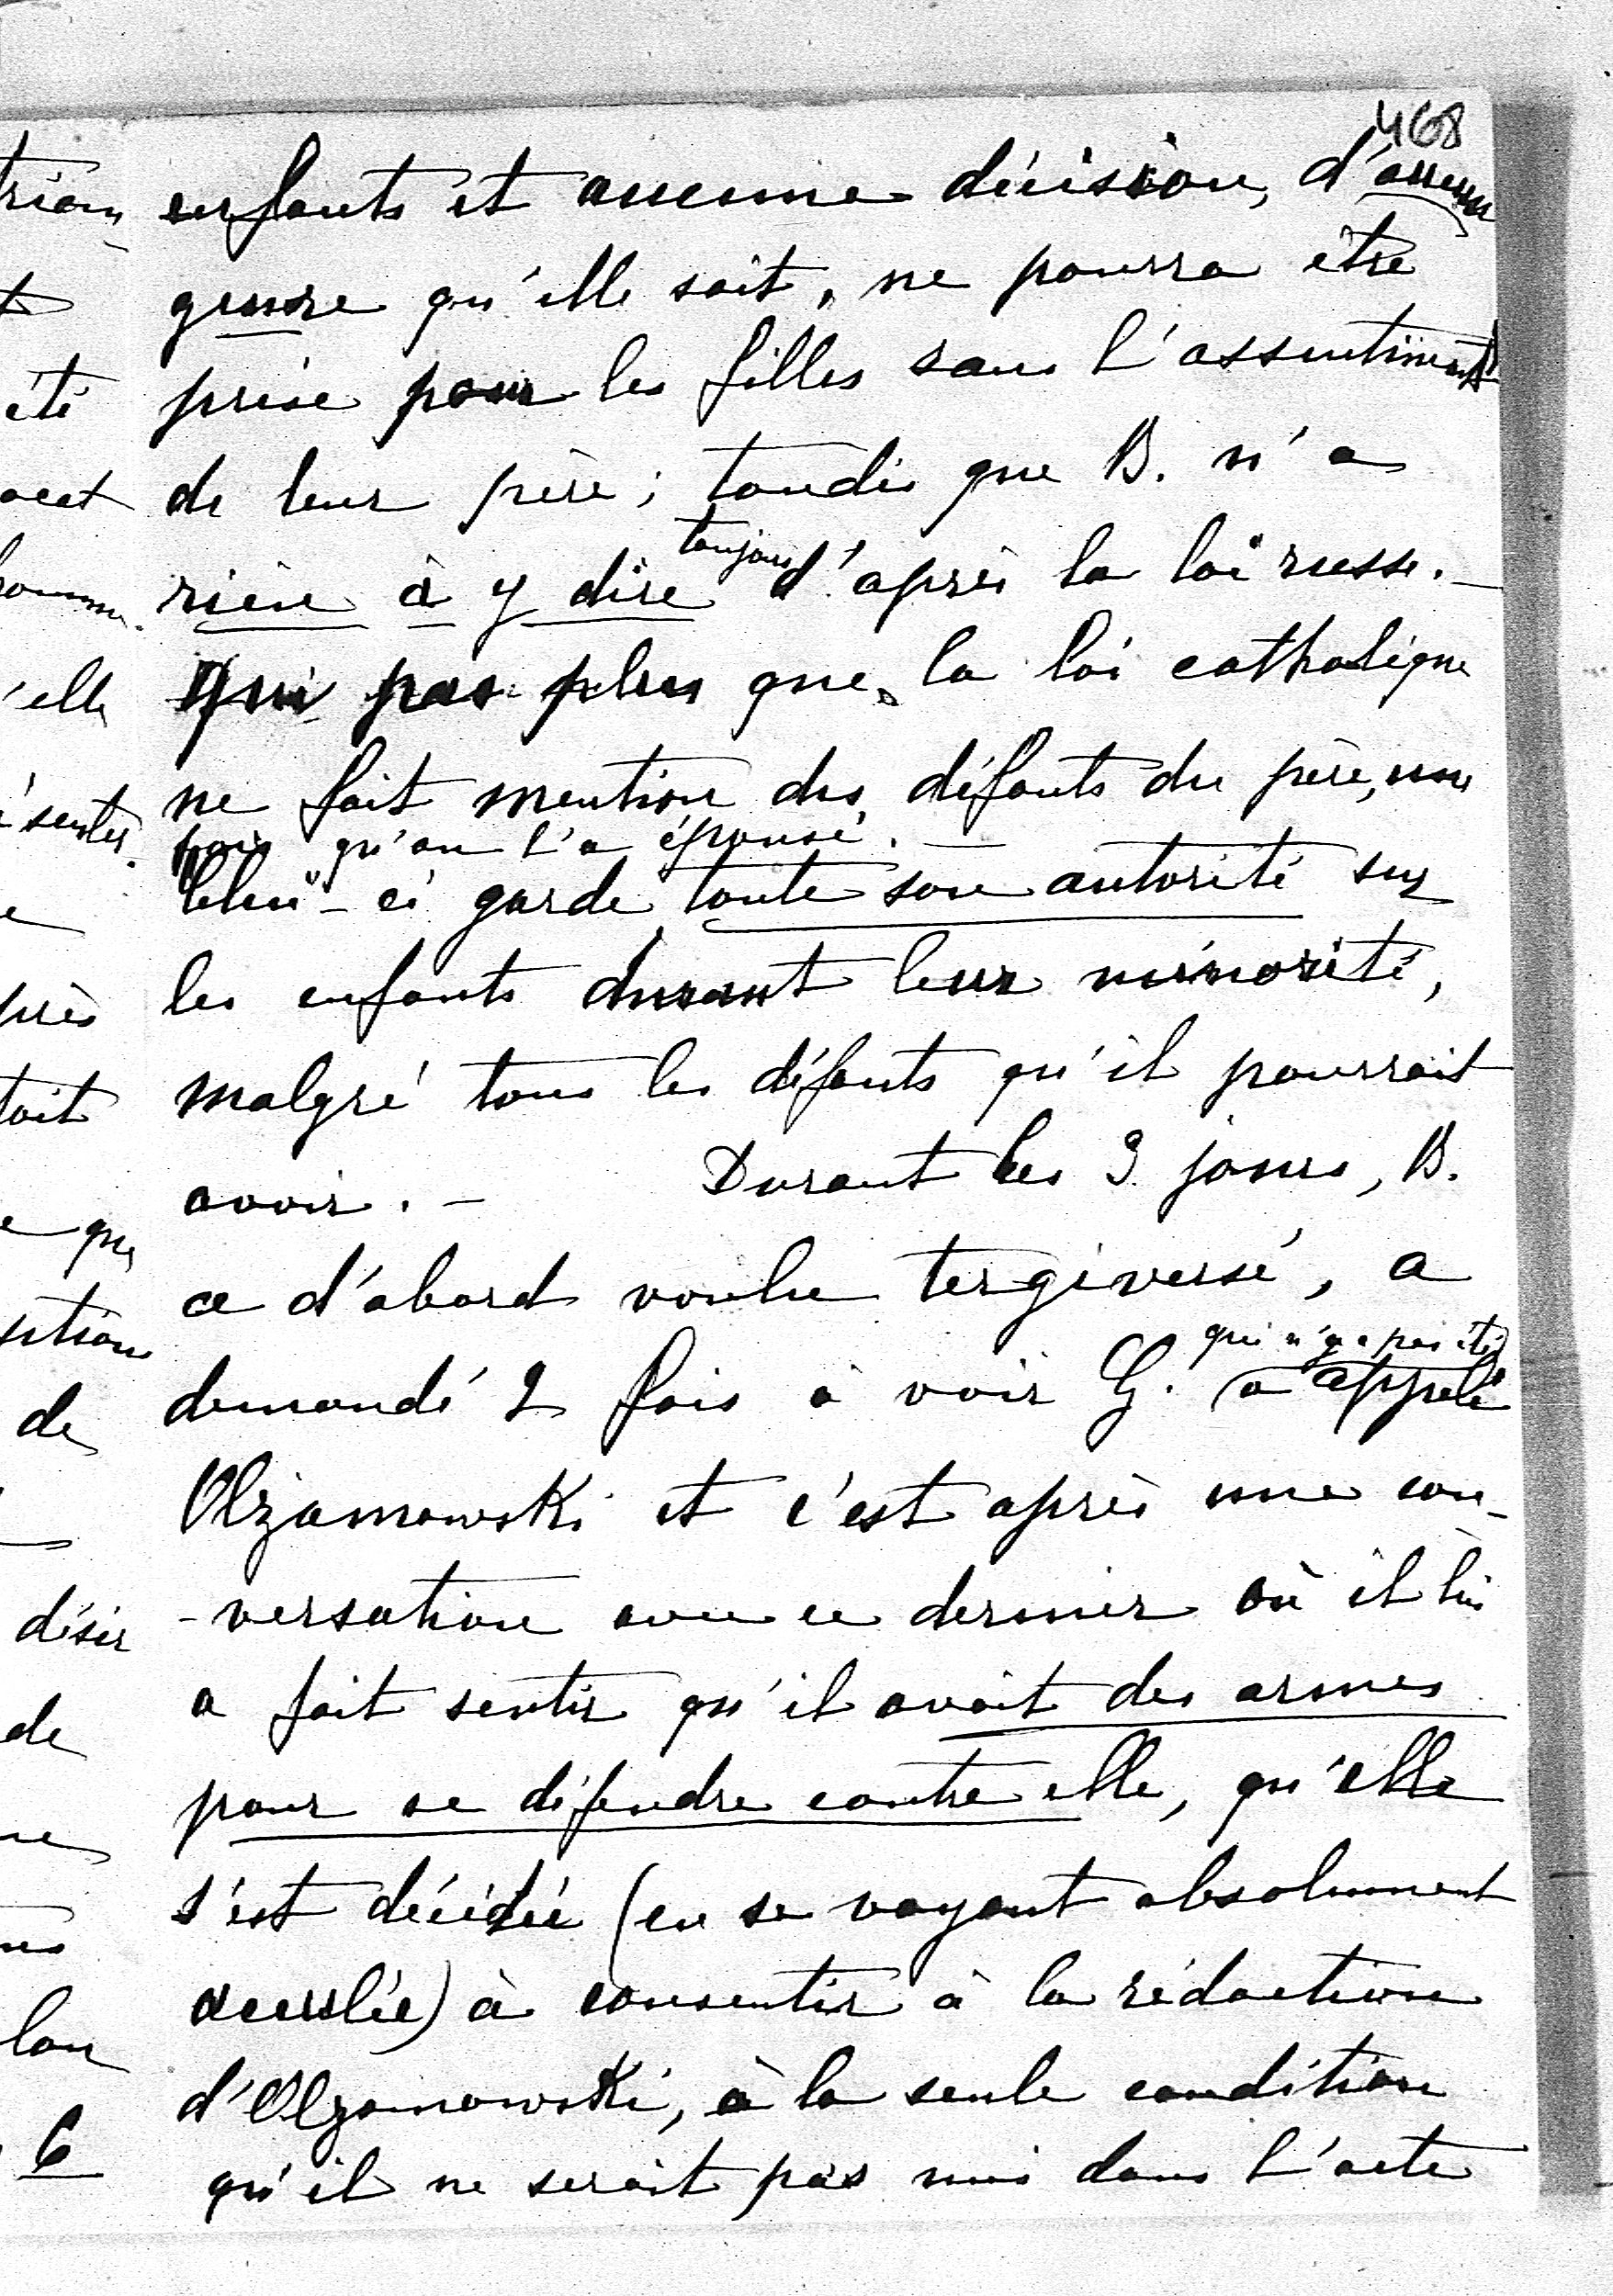 468
enfants et aucune décision, d'aucun
genre qu'elle soit, ne pourra être
prise pour les filles sans l'assentiment
de leur père; tandis que B. n'a
rien à y dire toujours d'après la loi russe. —
qui pas plus que la loi catholique
ne fait mention des défauts du père, une
fois qu'on l'a épousé. —
Celui-ci garde toute son autorité sur
les enfants durant leur minorité,
malgré tous les défauts qu'il pourrait
avoir. — Durant les 3 jours, B.
a d'abord voulu tergiversé, a
qui n'y a pas été
demandé 2 fois à voir G. a appelé
Olzamowski et c'est après une con-
-versation avec ce dernier où il lui
a fait sentir qu'il avait des armes
pour se défendre contre elle, qu'elle
s'est décidée (en se voyant absolument
acculée) à consentir à la rédaction
d'Olzamowski, à la seule condition
qu'il ne serait pas mis dans l'acte
été
'elle
près
toit
que
de
désir
de
6